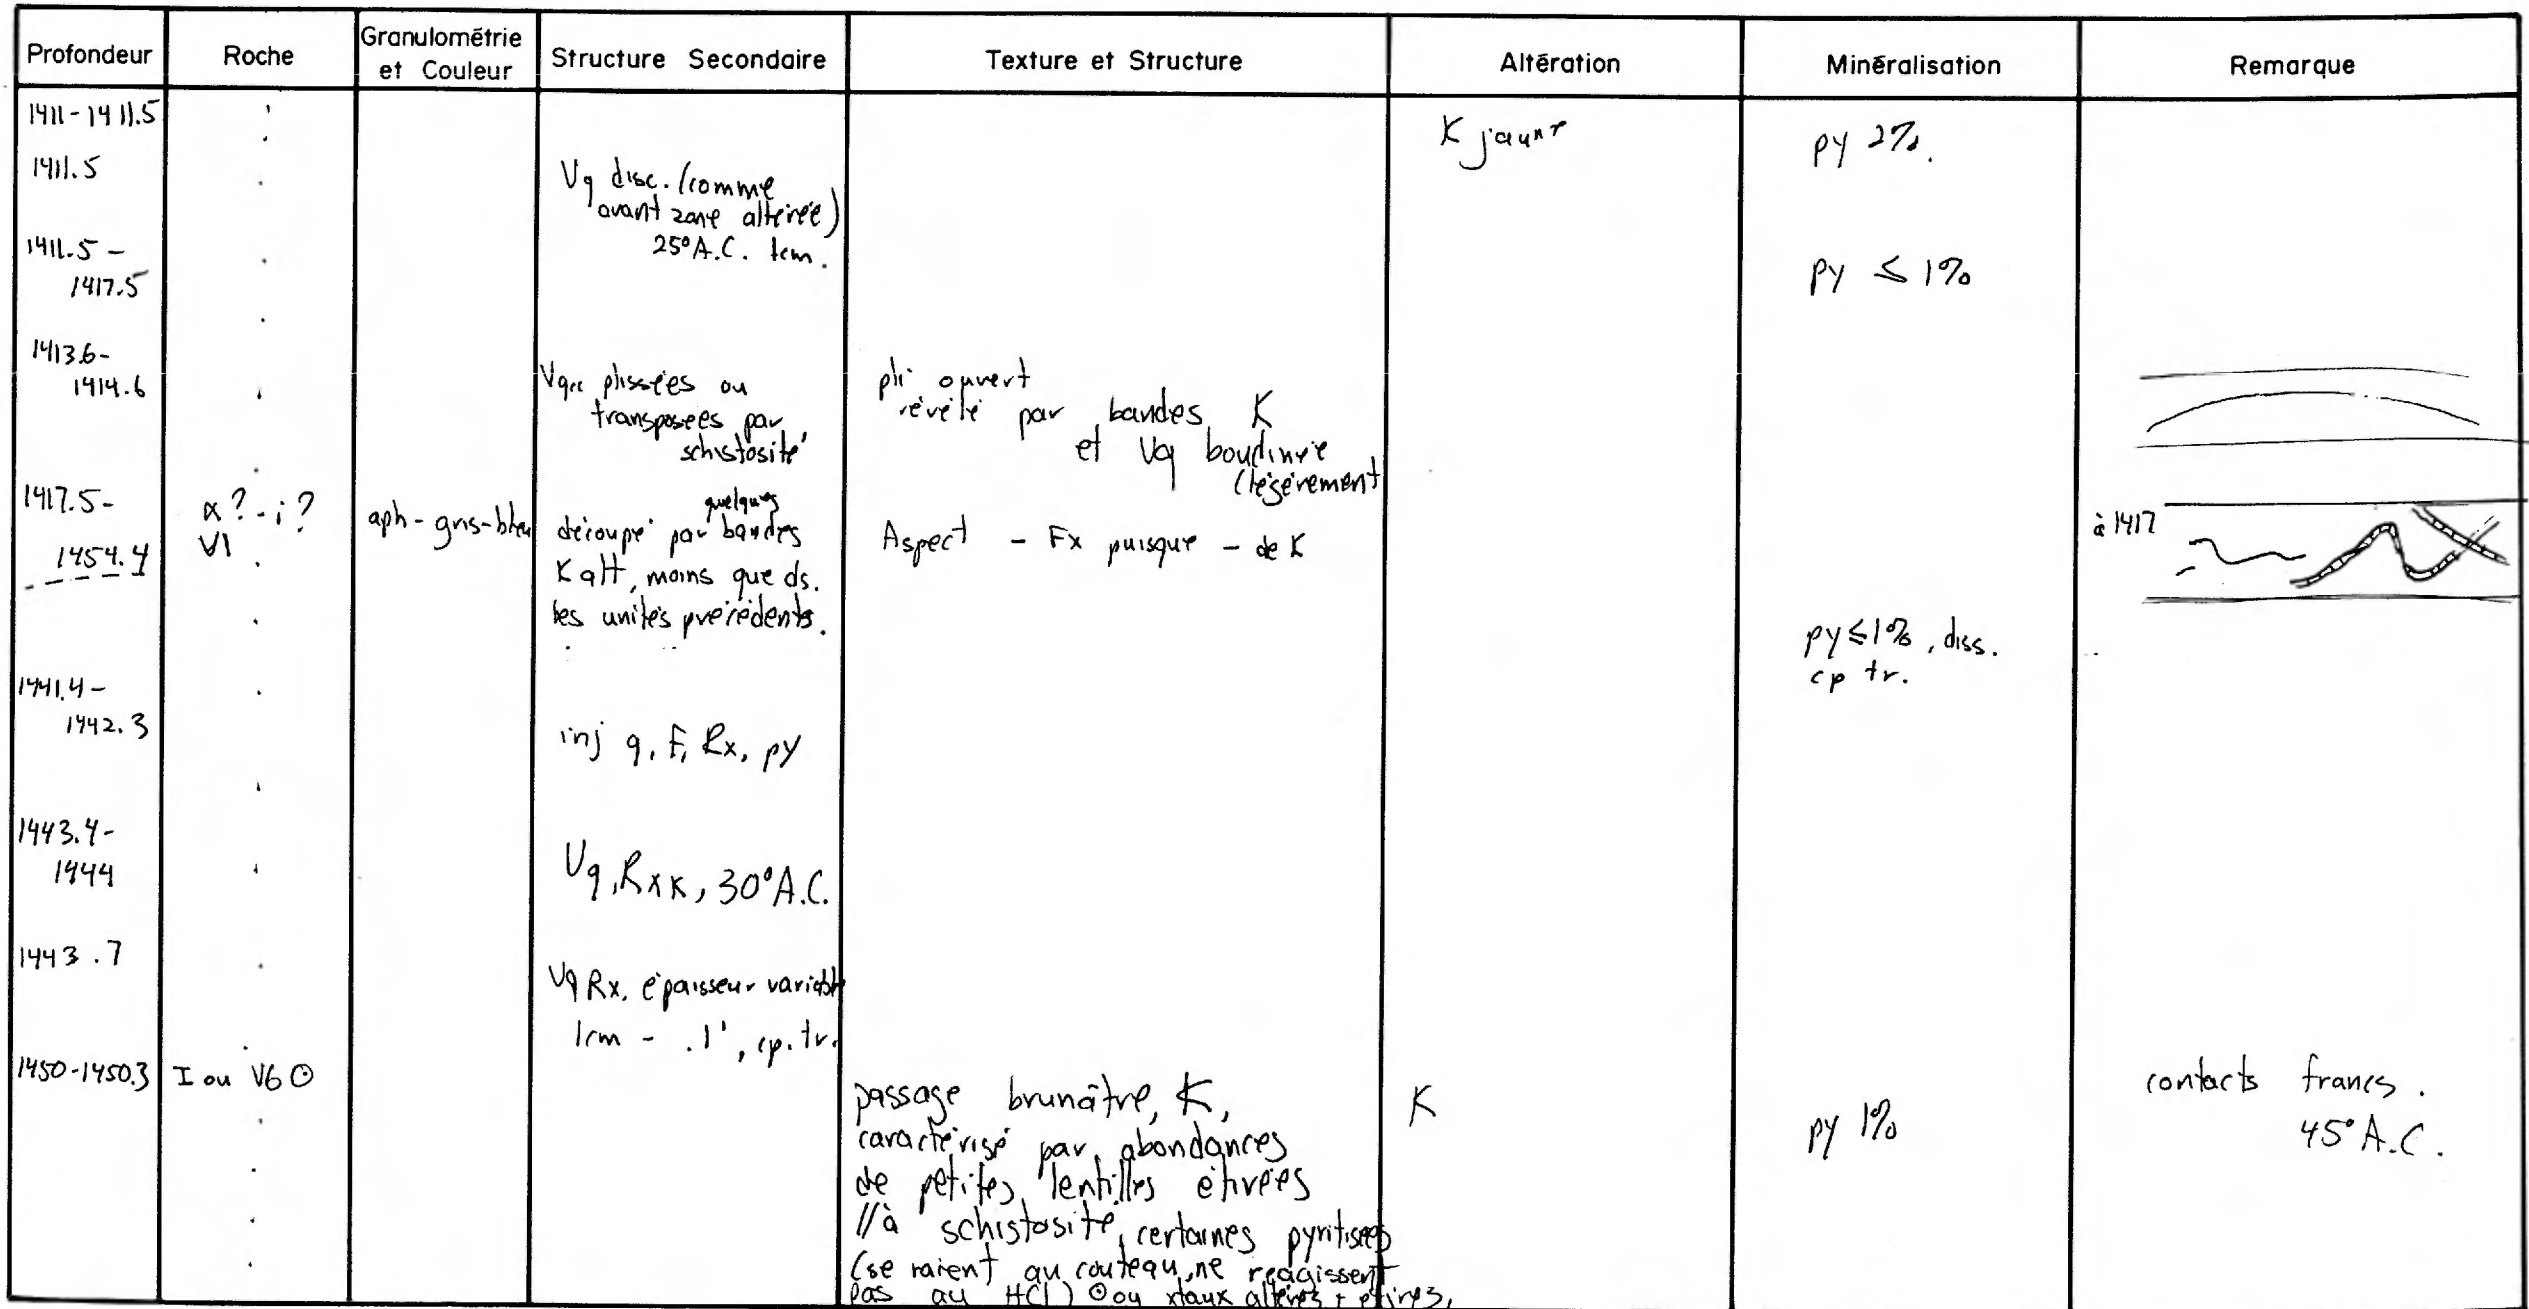 Profondeur Roche Granulométrie et Couleur Structure Secondaire Texture et Structure Altération Minéralisation Remarque
1411-1411.5 K jaune py 2%.
1411.5 Vq disc. (comme
avant zone altérée)
25° A.C. 1cm.
1411.5 -
1417.5 py ≤ 1%
1413.6-
1414.6 plissées ou
transposées par
schistosité
pli ouvert
révélé par bandes K
et Vq boudinée
(légèrement
1417.5-
1454.4
α? - i?
V1
aph - gris-bleu
découpé par quelques bandes
K alt, moins que ds.
les unités précédents.
Aspect - Fx puisque - de K
à 1417
py ≤ 1%, diss.
cp tr.
1441.4-
1442.3
inj q, F, Rx, py
1443.4-
1444
Vq, RxK, 30° A.C.
1443.7
Vq Rx. épaisseur variable
1cm - .1', cp. tr.
1450-1450.3 I ou V6 ⊙
passage brunâtre, K,
caractérisé par abondances
de petites lentilles étirées
// à schistosité, certaines pyritisées
(se raient au couteau, ne réagissent
pas au HCl) ⊙ ou xtaux altérés + étirés.
K
py 1%
contacts francs.
45° A.C.